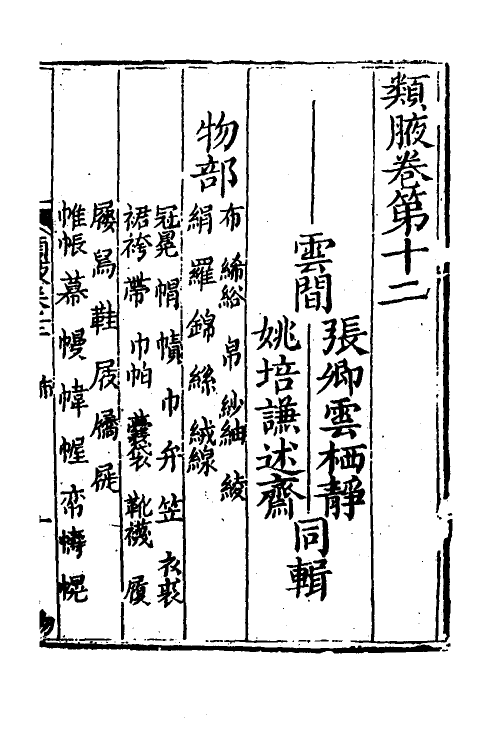 類腋卷第十二
雲間
張卿雲栖靜
姚培謙述齋
同輯
物部
布 絺綌 帛 紗紬 綾
絹 羅 錦 絲 絨線
冠冕 帽 幘 巾 弁 笠 衣裘
裙袴 帶 巾帕 囊袋 靴襪 履
屐舃 鞋 屐屩 屣
帷帳 幕 幔 幃 幄 帟 幬 幌